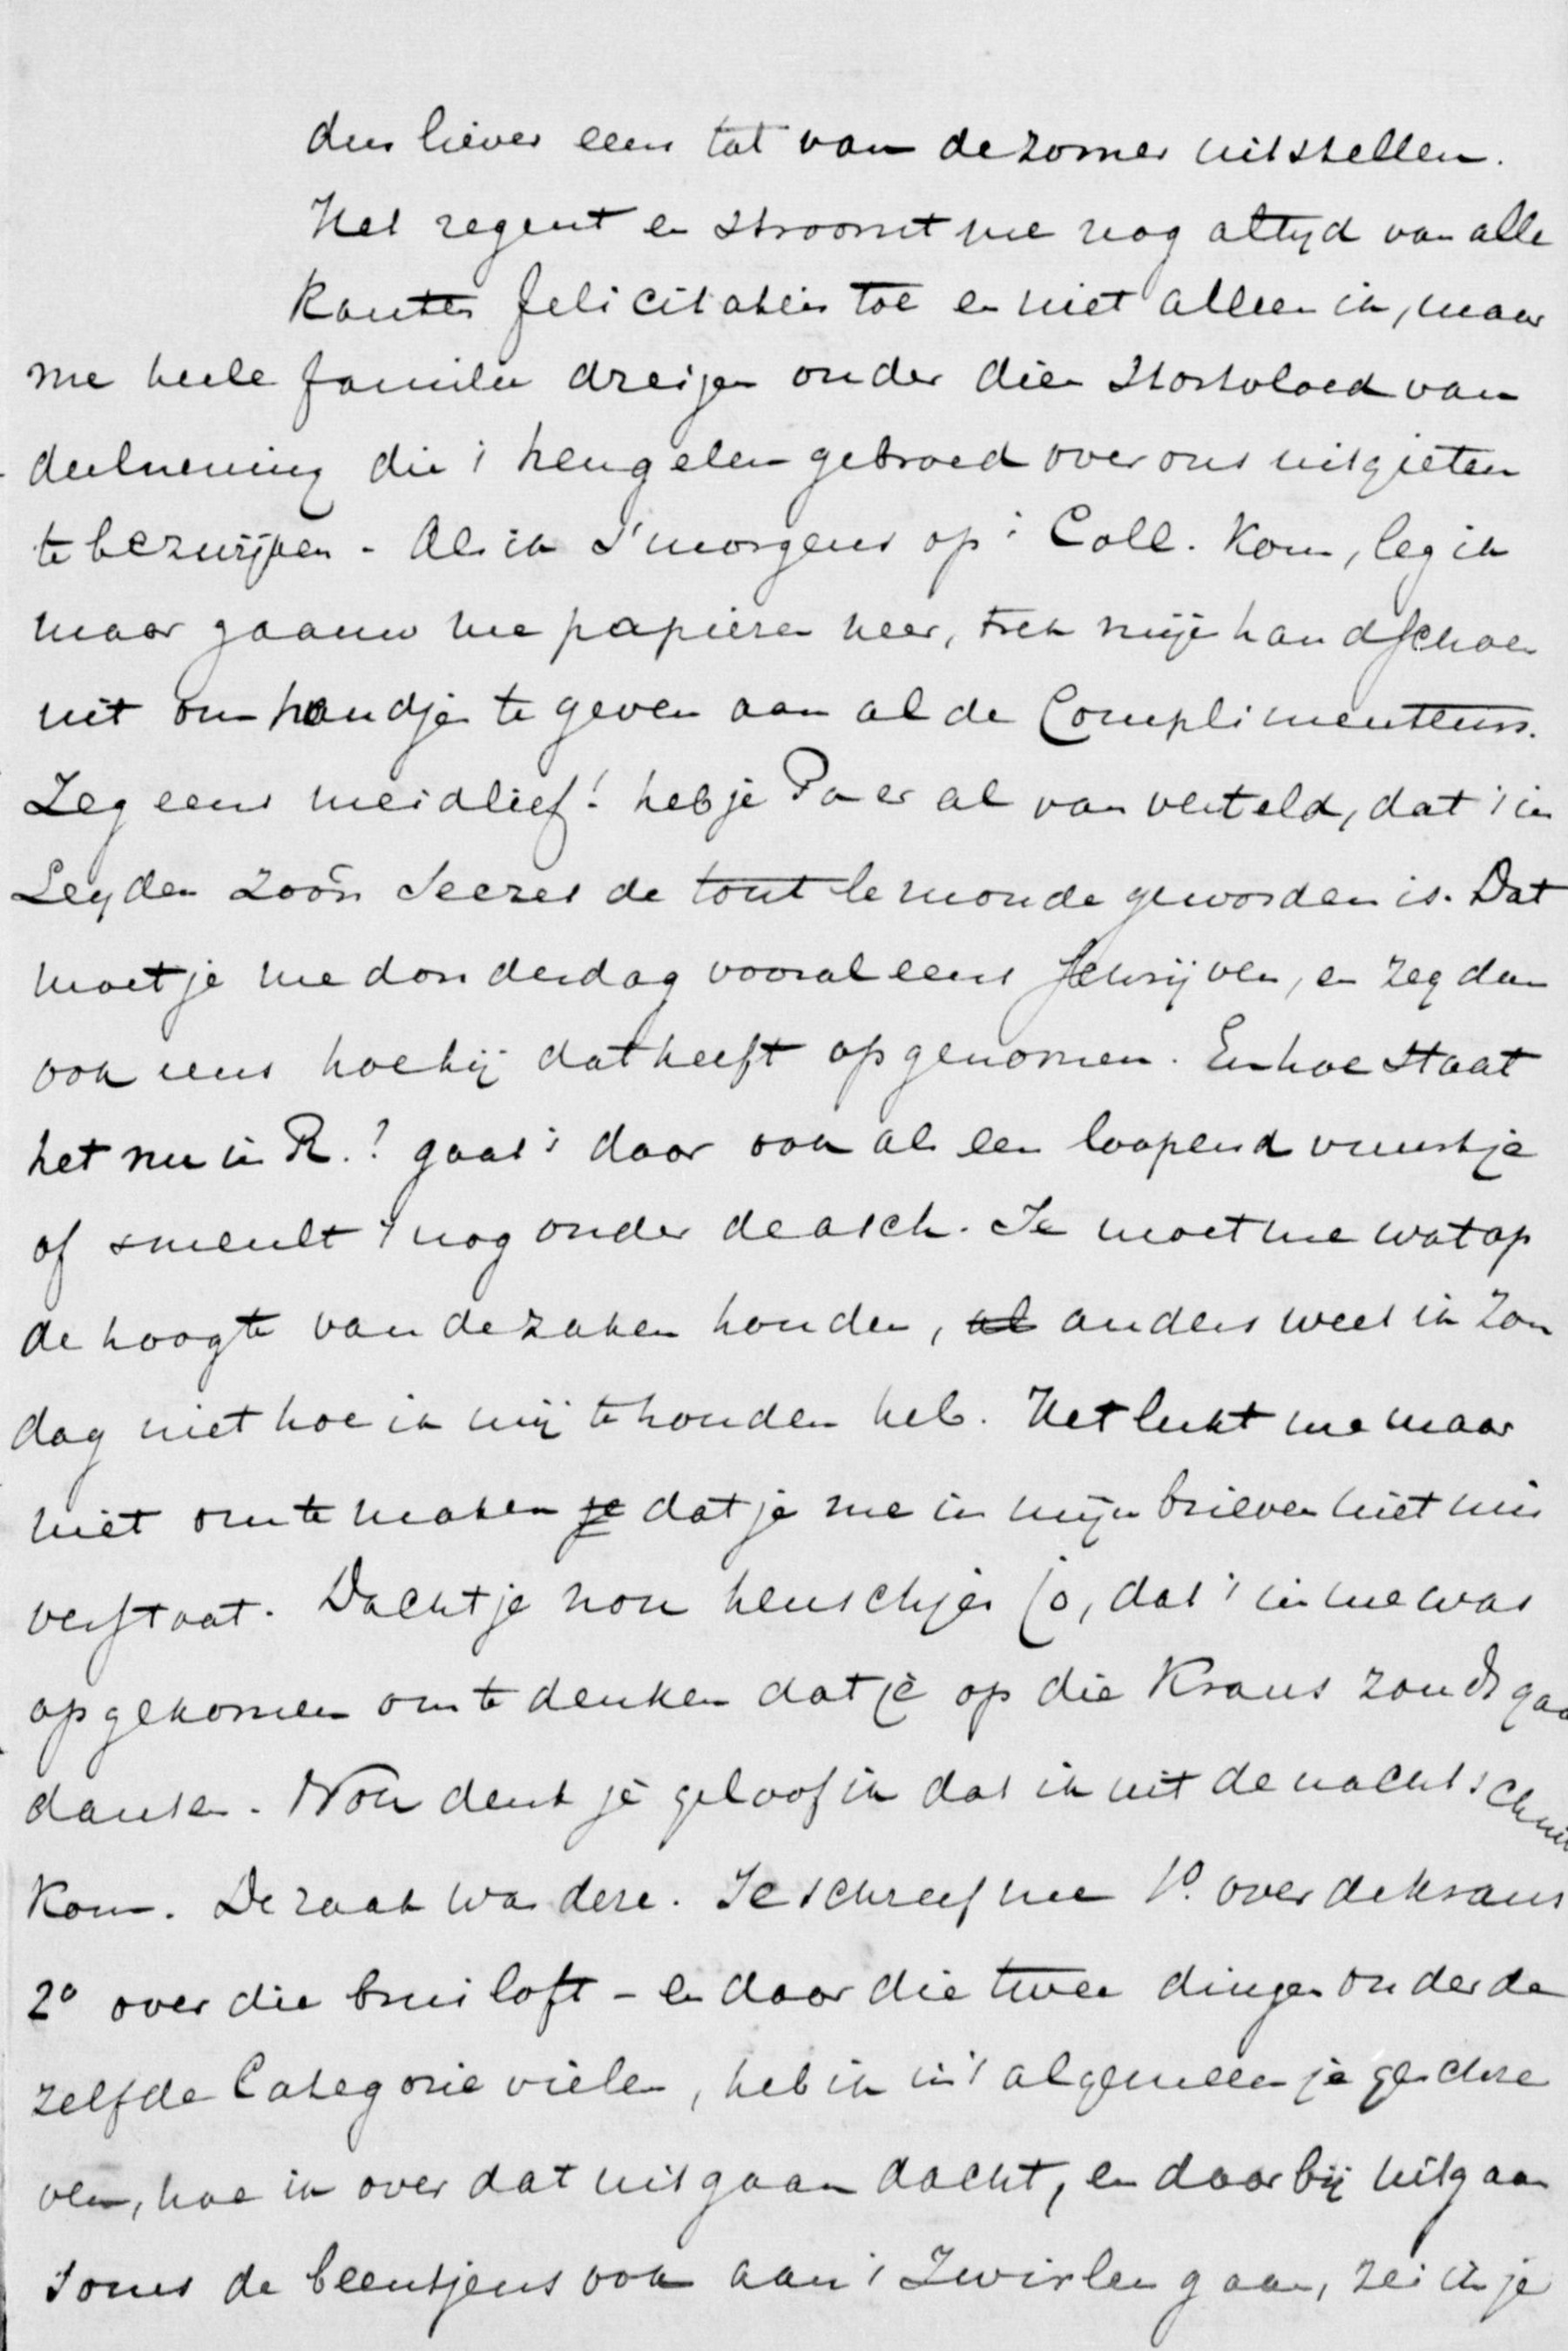 den liever eens tot van de zomer uitstellen.
Het regent en stroomt me nog altyd van alle
kanten felicitatiën toe en niet alleen ik, maar
me heele familie dreigen onder dien stortvloed van
deelneming die 't hengelen gebroed over ons uitgieten
te bezwijken. Als ik 's morgens op 't Coll. kom, leg ik
maar gaauw me papieren neer, trek mijn handschoen
uit om handjen te geven aan al de Complimenteurs.
Zeg eens meidlief! heb je Pa er al van verteld, dat 't in
Leyden zoo'n Secret de tout le monde geworden is. Dat
moet je me donderdag vooral eens schrijven, en zeg dan
ook eens hoe hij dat heeft opgenomen. En hoe staat
het nu in R.? gaat 't daar ook als een loopend vuurtje
of smeult 't nog onder de asch. Je moet me wat op
de hoogte van de zaken houden, al anders weet ik Zon
dag niet hoe ik mij te houden heb. Het lukt me maar
niet om te maken je dat je me in mijn brieven niet mis
verstaat. Dacht je nou heuschjes Jo, dat 't in me was
opgekomen om te denken dat je op die Krans zoudt gaa
dansen. Nou denk je geloof ik dat ik uit de nachtschui
kom. De zaak was deze. Je schreef me 1o. over de krans
2o over die bruiloft - en daar die twee dingen onder de
zelfde Categorie vielen, heb ik in 't algemeen je geschre
ven, hoe ik over dat uitgaan dacht, en daar bij uitgaan
soms de beentjens ook aan 't Zwirlen gaan, zei ik je